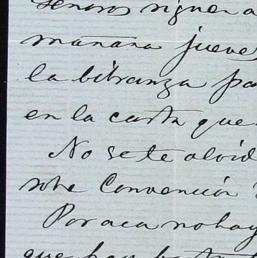 señores siguen a
mañana jueves
la libranza pa
en la carta que
No se te olvid
sobre Convención
Por aca no hay
que